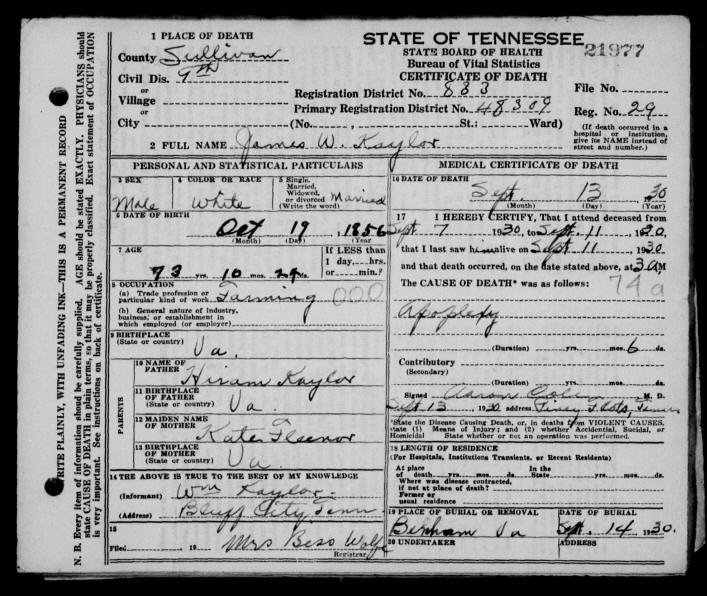 STATE OF TENNESSEE
21977
STATE BOARD OF HEALTH
Bureau of Vital Statistics
CERTIFICATE OF DEATH
1 PLACE OF DEATH
County Sullivan
Civil Dis. 9th
or
Village
or
City
Registration District No. 883
File No.
Primary Registration District No. 48309
Reg. No. 29
(No. , St.; Ward)
(If death occurred in a hospital or institution, give its NAME instead of street and number.)
2 FULL NAME James W. Kaylor
PERSONAL AND STATISTICAL PARTICULARS
3 SEX Male
4 COLOR OR RACE White
5 Single, Married, Widowed, or divorced (Write the word) Married
6 DATE OF BIRTH
Oct 19, 1856
(Month) (Day) (Year
7 AGE
If LESS than
1 day, hrs.
or min.?
73 yrs. 10 mos. ds.
8 OCCUPATION
(a) Trade profession or particular kind of work Farming 000
(b) General nature of industry, business, or establishment in which employed (or employer)
9 BIRTHPLACE
(State or country) Va.
PARENTS
10 NAME OF FATHER Hiram Kaylor
11 BIRTHPLACE OF FATHER (State or country) Va
12 MAIDEN NAME OF MOTHER Kate Fleenor
13 BIRTHPLACE OF MOTHER (State or country) Va
14 THE ABOVE IS TRUE TO THE BEST OF MY KNOWLEDGE
(Informant) Wm Kaylor
(Address) Bluff City, Tenn
15
Filed 19 Mrs Bess Wolfe
Registrar
MEDICAL CERTIFICATE OF DEATH
16 DATE OF DEATH
Sept. 13 30
(Month) (Day) (Year)
17 I HEREBY CERTIFY, That I attend deceased from
Sept 7 1930, to Sept. 11, 1930
that I last saw him alive on Sept 11, 1930
and that death occurred, on the date stated above, at 3 AM
The CAUSE OF DEATH* was as follows: 74a
Apoplexy
(Duration) yrs. mos. 6 ds.
Contributory
(Secondary)
(Duration) yrs. mos. ds.
Signed Aaron M. D.
Sept 13 1930 address Piney Flats, Tenn
*State the Disease Causing Death, or, in deaths from VIOLENT CAUSES, state (1) Means of Injury; and (2) whether Accidental, Sucidal, or Homicidal State whether or not an operation was performed.
18 LENGTH OF RESIDENCE
(For Hospitals, Institutions Transients, or Recent Residents)
At place of death yrs. mos. ds. In the State yrs. mos. ds.
Where was disease contracted,
if not at place of death?
Former or
usual residence
19 PLACE OF BURIAL OR REMOVAL
DATE OF BURIAL
Benham Va
Sept. 14 1930.
20 UNDERTAKER
ADDRESS
N. B. Every item of information should be carefully supplied. AGE should be stated EXACTLY. PHYSICIANS should
state CAUSE OF DEATH in plain terms, so that it may be properly classified. Exact statement of OCCUPATION
is very important. See instructions on back of certificate.
RITE PLAINLY, WITH UNFADING INK—THIS IS A PERMANENT RECORD